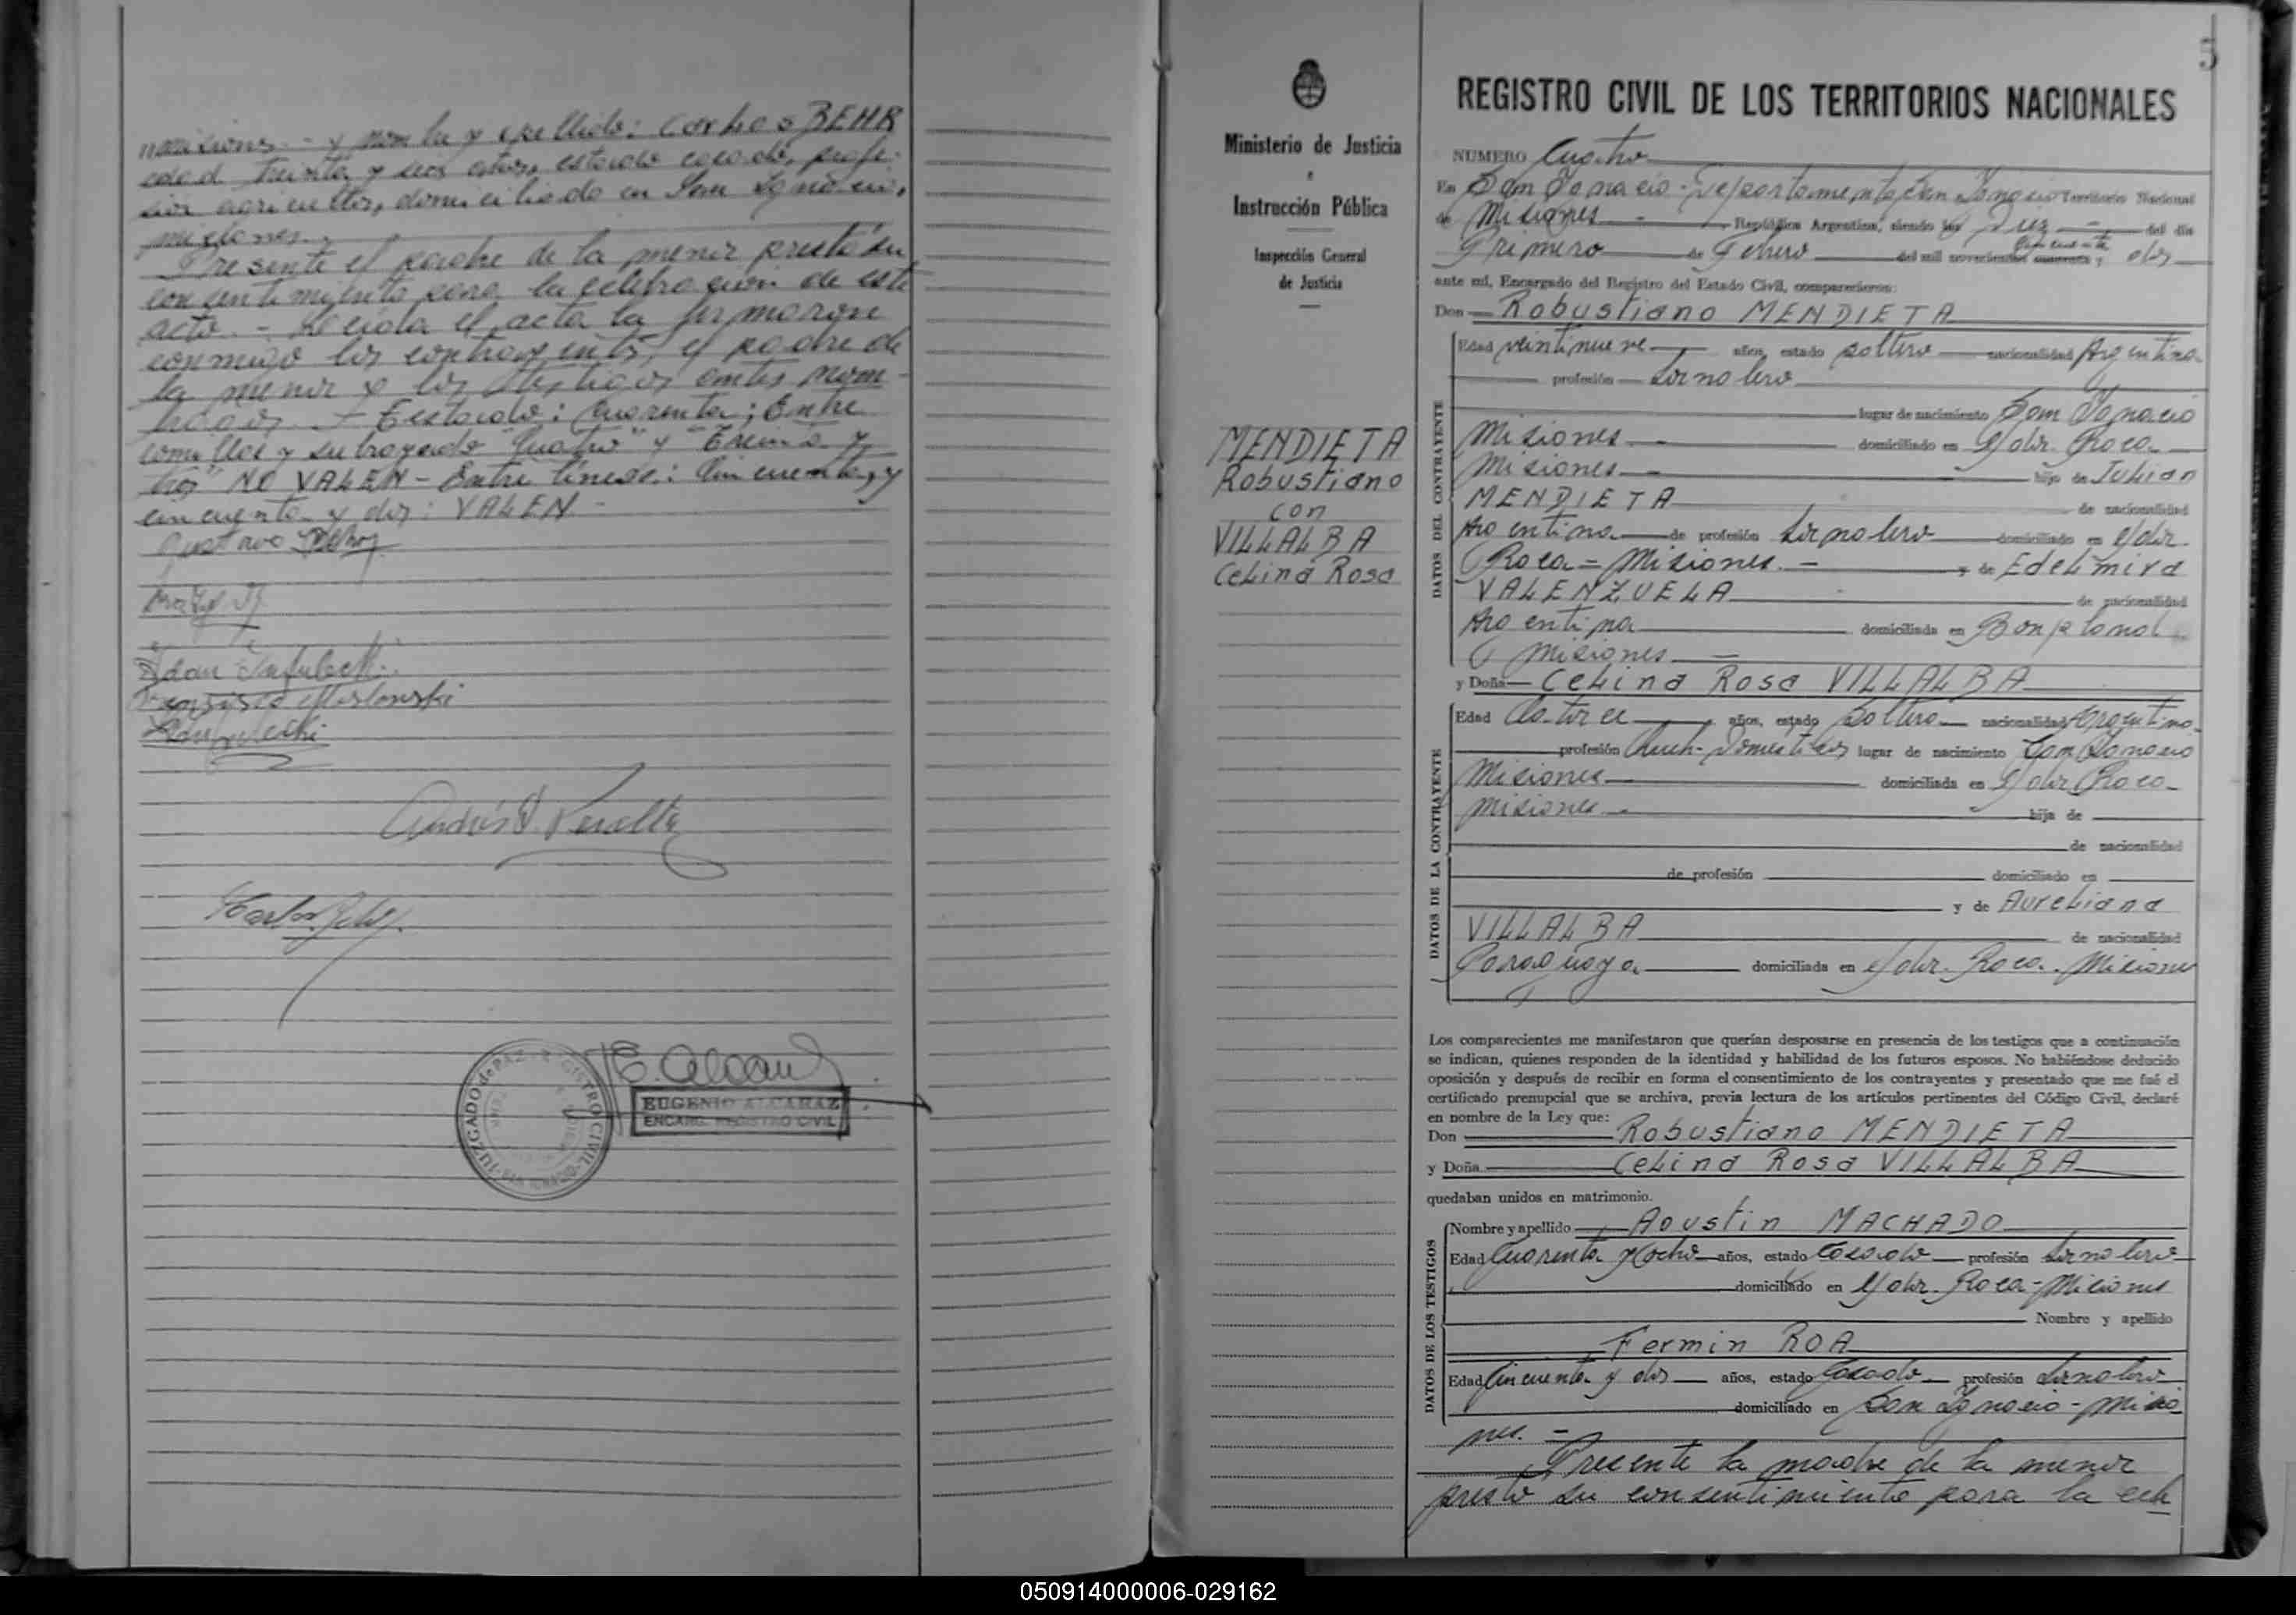 misiones.- y nombre y apellido: Carlos BEHR
edad treinta y seis años, estado casado, profe-
sion agricultor, domiciliado en San Ignacio,
misiones.-
Presente el padre de la menor prestó su
consentimiento para la celebracion de este
acto. - Leida el acta la firmaron
conmigo los contrayentes, el padre de
la menor y los testigos antes nom-
brados. - Testado: Cuarenta; Entre
comillas y subrayado "Cuatro" y "Treinta y
tres" NO VALEN - Entre lineas: Cincuenta, y
cincuenta y dos: VALEN -
Gustavo
Andrés V. Peralta
Carlos Behr
JUZGADO de PAZ REGISTRO CIVIL - SAN IGNACIO
E Alcaraz
EUGENIO ALCARAZ
ENCARG. REGISTRO CIVIL
5
Ministerio de Justicia
e
Instrucción Pública
Inspección General
de Justicia
MENDIETA
Robustiano
con
VILLALBA
Celina Rosa
REGISTRO CIVIL DE LOS TERRITORIOS NACIONALES
NUMERO Cuatro
En San Ignacio - Departamento San Ignacio Territorio Nacional
de Misiones - República Argentina, siendo las Diez - del día
Primero de Febrero del mil novecientos cuarenta y cincuenta dos
ante mí, Encargado del Registro del Estado Civil, comparecieron:
Don Robustiano MENDIETA
DATOS DEL CONTRAYENTE
Edad veintinueve años, estado soltero nacionalidad Argentina
profesión Jornalero
lugar de nacimiento San Ignacio
Misiones - domiciliado en Gobr. Roca
Misiones - hijo de Julian
MENDIETA de nacionalidad
Argentina de profesión Jornalero domiciliado en Gobr.
Roca - Misiones. - y de Edelmira
VALENZUELA de nacionalidad
Argentina domiciliada en Bonpland
Misiones -
y Doña Celina Rosa VILLALBA
DATOS DE LA CONTRAYENTE
Edad Catorce años, estado Soltera nacionalidad Argentina
profesión Queh- Domesticos lugar de nacimiento San Ignacio
Misiones domiciliada en Gobr Roca -
Misiones - hija de
de nacionalidad
de profesión domiciliado en
y de Aureliana
VILLALBA de nacionalidad
Paraguaya domiciliada en Gobr. Roca. Misiones
Los comparecientes me manifestaron que querían desposarse en presencia de los testigos que a continuación
se indican, quienes responden de la identidad y habilidad de los futuros esposos. No habiéndose deducido
oposición y después de recibir en forma el consentimiento de los contrayentes y presentado que me fué el
certificado prenupcial que se archiva, previa lectura de los artículos pertinentes del Código Civil, declaré
en nombre de la Ley que:
Don Robustiano MENDIETA
y Doña Celina Rosa VILLALBA
quedaban unidos en matrimonio.
DATOS DE LOS TESTIGOS
Nombre y apellido Agustin MACHADO
Edad Cuarenta y ocho años, estado Casado profesión Jornalero
domiciliado en Gobr. Roca - Misiones
Nombre y apellido
Fermin ROA
Edad Cincuenta y dos años, estado Casado profesión Jornalero
domiciliado en San Ignacio - Misio
nes. -
Presente la madre de la menor
prestó su consentimiento para la cele
050914000006-029162